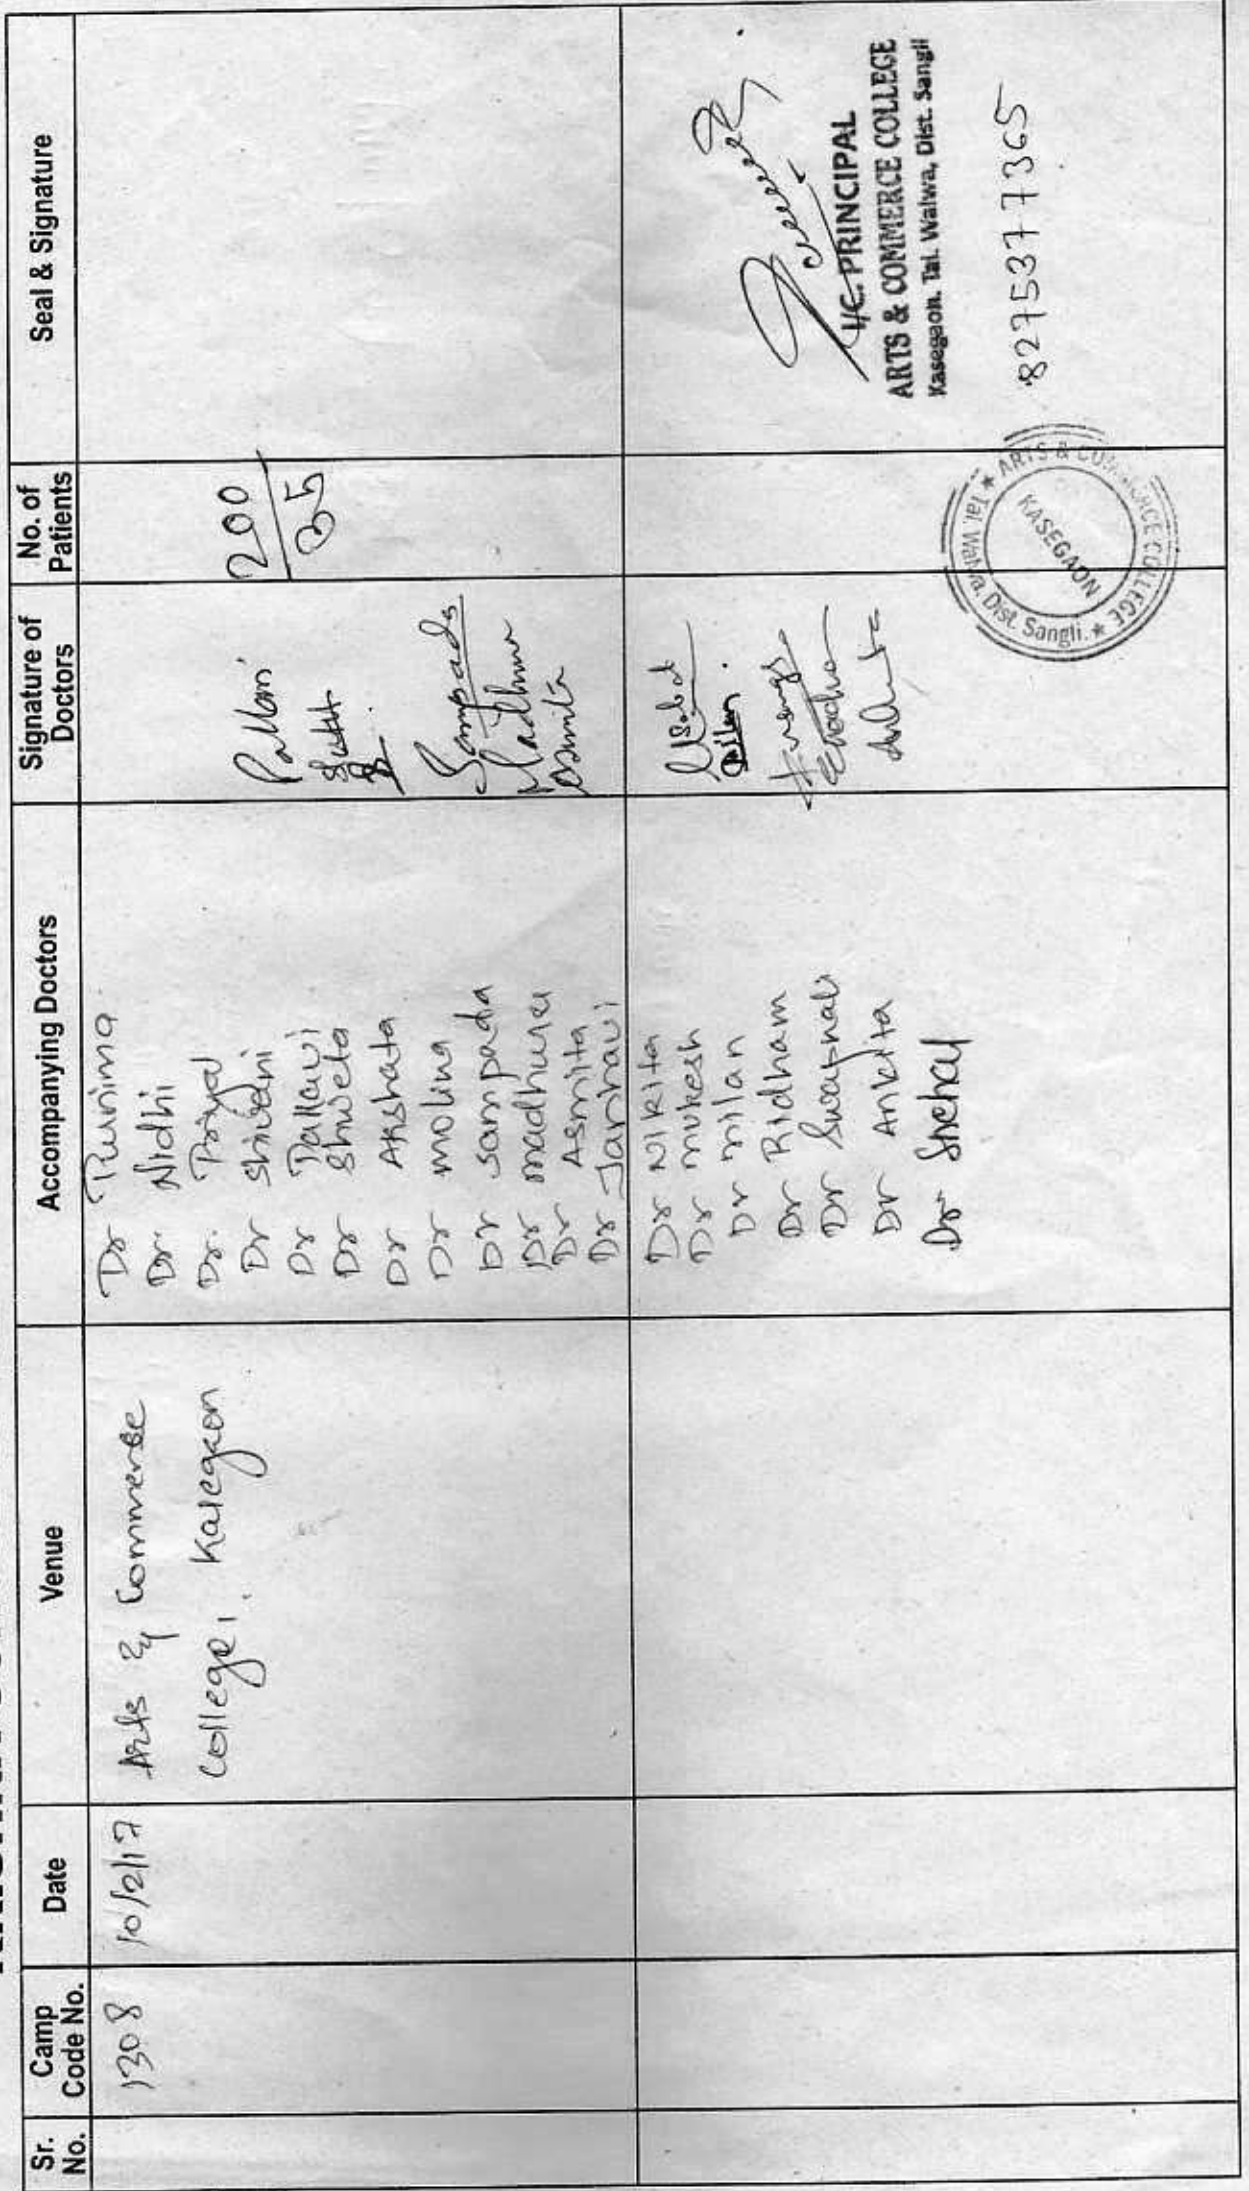 Sr. No.
Camp Code No.
Date
Venue
Accompanying Doctors
Signature of Doctors
No. of Patients
Seal & Signature
1308
10/2/17
Arts & Commerse
College, Kasegaon
Dr Purnima
Dr. Nidhi
Dr. Priyal
Dr Shivani
Dr Pallavi
Dr Shweta
Dr Akshata
Dr molina
Dr sampada
Dr madhura
Dr Asmita
Dr Janhavi
Pallavi
Sampada
Madhura
Asmita
200
35
Dr Nikita
Dr mukesh
Dr milan
Dr Ridham
Dr Swapnali
Dr Ankita
Dr Snehal
I/C. PRINCIPAL
ARTS & COMMERCE COLLEGE
Kasegaon. Tal. Walwa, Dist. Sangli
8275377365
★ ARTS & COMMERCE COLLEGE ★ Tal. Walwa, Dist. Sangli.
KASEGAON